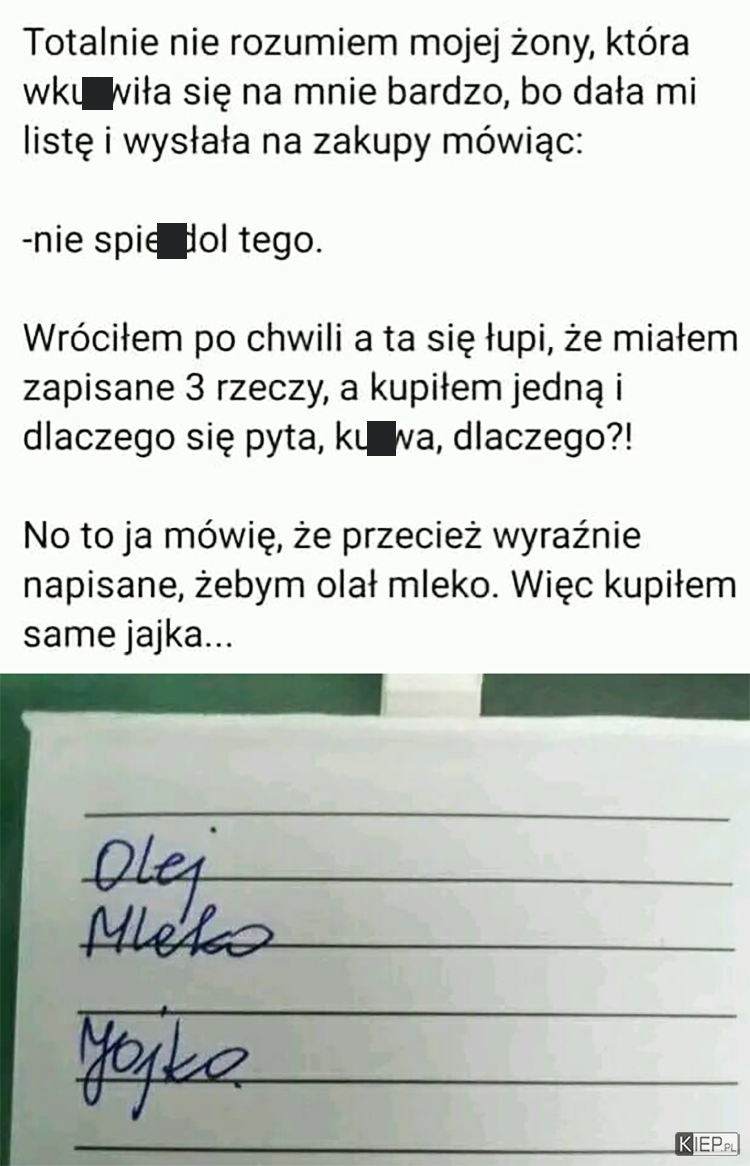 Totalnie nie rozumiem mojej żony, która
wku█wiła się na mnie bardzo, bo dała mi
listę i wysłała na zakupy mówiąc:
-nie spie█dol tego.
Wróciłem po chwili a ta się łupi, że miałem
zapisane 3 rzeczy, a kupiłem jedną i
dlaczego się pyta, ku█wa, dlaczego?!
No to ja mówię, że przecież wyraźnie
napisane, żebym olał mleko. Więc kupiłem
same jajka...
Olej
Mleko
Jajka
KIEP.PL